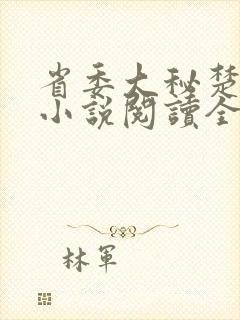 省委大秘楚
小説閱讀全
林軍